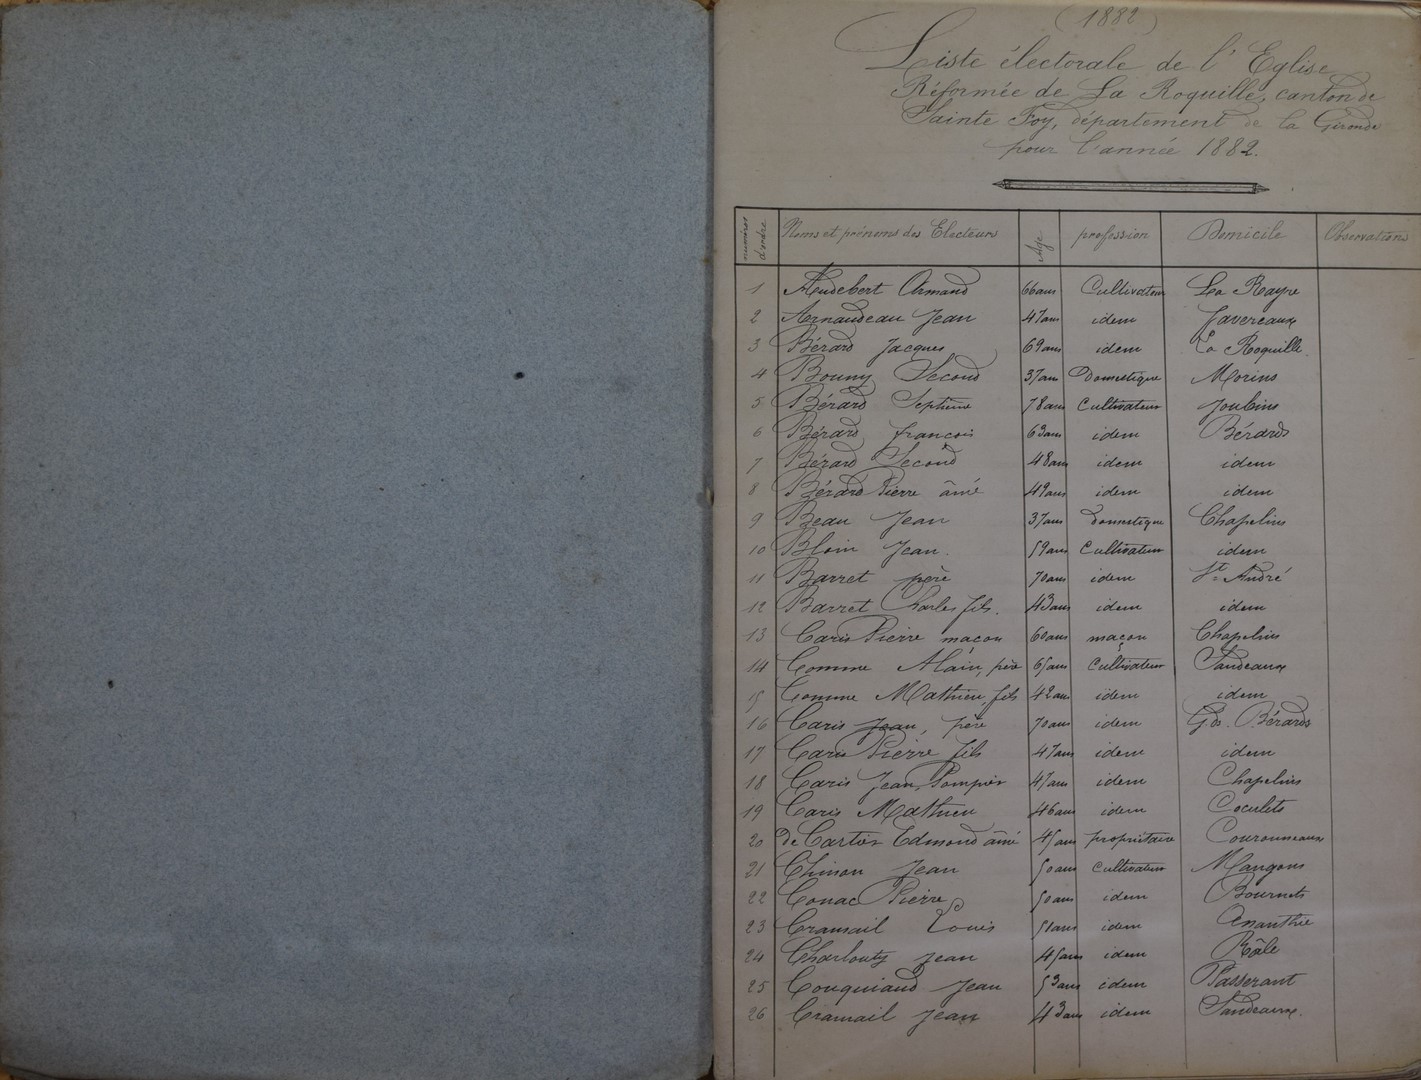 (1882)
Liste électorale de l'Eglise
Réformée de La Roquille, canton de
Sainte Foy, département de la Gironde
pour l'année 1882.
numéros d'ordre Noms et prénoms des Electeurs Age profession Domicile Observations
1 Audebert Armand 66 ans Cultivateur La Rayre
2 Arnaudeau Jean 47 ans idem Favereaux
3 Bérard Jacques 69 ans idem La Roquille.
4 Bouny Second 37 ans Domestique Morins
5 Bérard Septime 78 ans Cultivateur Joubins
6 Bérard françois 63 ans idem Bérards
7 Bérard Second 48 ans idem idem
8 Bérard Pierre âiné 49 ans idem idem
9 Beau Jean 37 ans domestique Chapelins
10 Bloin Jean. 59 ans Cultivateur idem
11 Barret père 70 ans idem St André
12 Barret Charles fils. 43 ans idem idem
13 Caris Pierre maçon 60 ans maçon Chapelins
14 Comme Alain, père 65 ans Cultivateur Sandeaux
15 Comme Mathieu, fils 42 ans idem idem
16 Caris Jean, père 70 ans idem Gds. Bérards
17 Caris Pierre fils 47 ans idem idem
18 Caris Jean, Pompier 47 ans idem Chapelins
19 Caris Mathieu 46 ans idem Coculets
20 de Cartier Edmond âiné 45 ans propriétaire Courouneaux
21 Chinon Jean 50 ans Cultivateur Mangons
22 Conac Pierre 50 ans idem Bournets
23 Cramail Louis 51 ans idem Ananthie
24 Charlouty Jean 45 ans idem Râle
25 Couquiaud Jean 53 ans idem Passerant
26 Cramail Jean 43 ans idem Sandeaux.